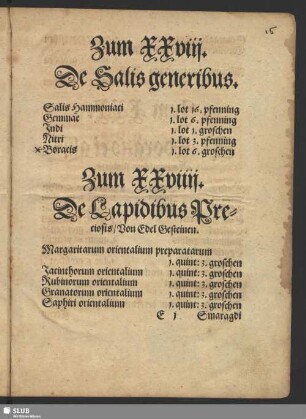 15
Zum XXviij.
De Salis generibus.
Salis Hammoniaci 1. lot 16. pfenning
Gemmae 1. lot 6. pfenning
Indi 1. lot 1. groschen
Nitri 1. lot 3. pfenning
Boracis 1. lot 6. groschen
Zum XXviiij.
De Lapidibus Pre=
tiosis/ Von Edel Gesteinen.
Margaritarum orientalium preparatarum
1. quint: 3. groschen
Jacinthorum orientalium 1. quint: 3. groschen
Rubinorum orientalium 1. quint: 3. groschen
Granatorum orientalium 1. quint: 3. groschen
Saphiri orientalium 1. quint: 3. groschen
E j Smaragdi
SLUB